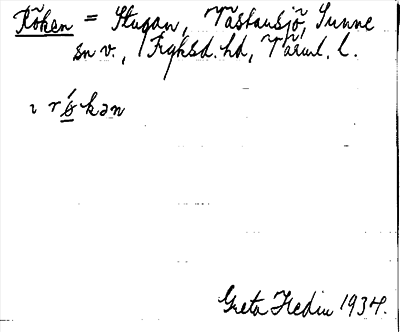 Röken = Stugan, Västansjö, Sunne
sn v., Fryksd. hd, Värml. l.
ı rö́kən
Greta Hedin 1934.